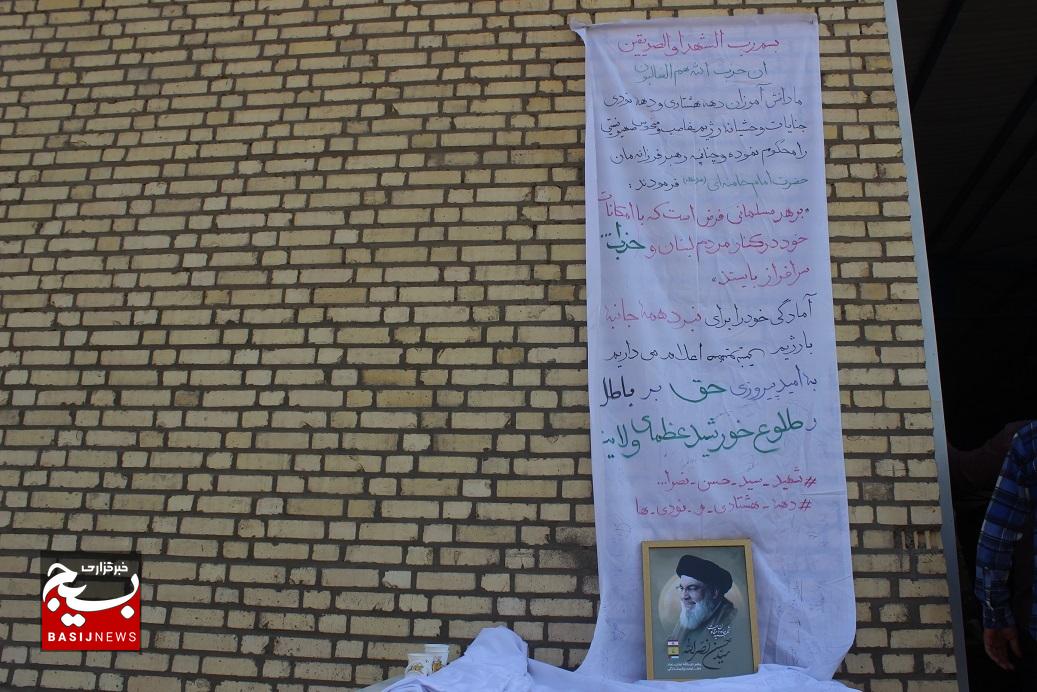 بسم رب الشهدا والصدیقین
ان حزب الله هم الغالبون
ما دانش آموزان دهه هشتادی و دهه نودی
جنایات وحشیانه رژیم غاصب و منحوس صهیونیستی
را محکوم نموده و چنانچه رهبر فرزانه مان
حضرت امام خامنه ای فرمودند :
"بر هر مسلمانی فرض است که با امکانات
خود در کنار مردم لبنان و حزب ا...
سرافراز بایستد"
آمادگی خود را برای نبرد همه جانبه
با رژیم اعلام می داریم
به امید پیروزی حق بر باطل
و طلوع خورشید عظمای ولایت
#شهید_سید_حسن_نصرا...
#دهه_هشتادی_و_نودی_ها
سید حسن نصرالله
خبرگزاری
بسیج
BASIJNEWS